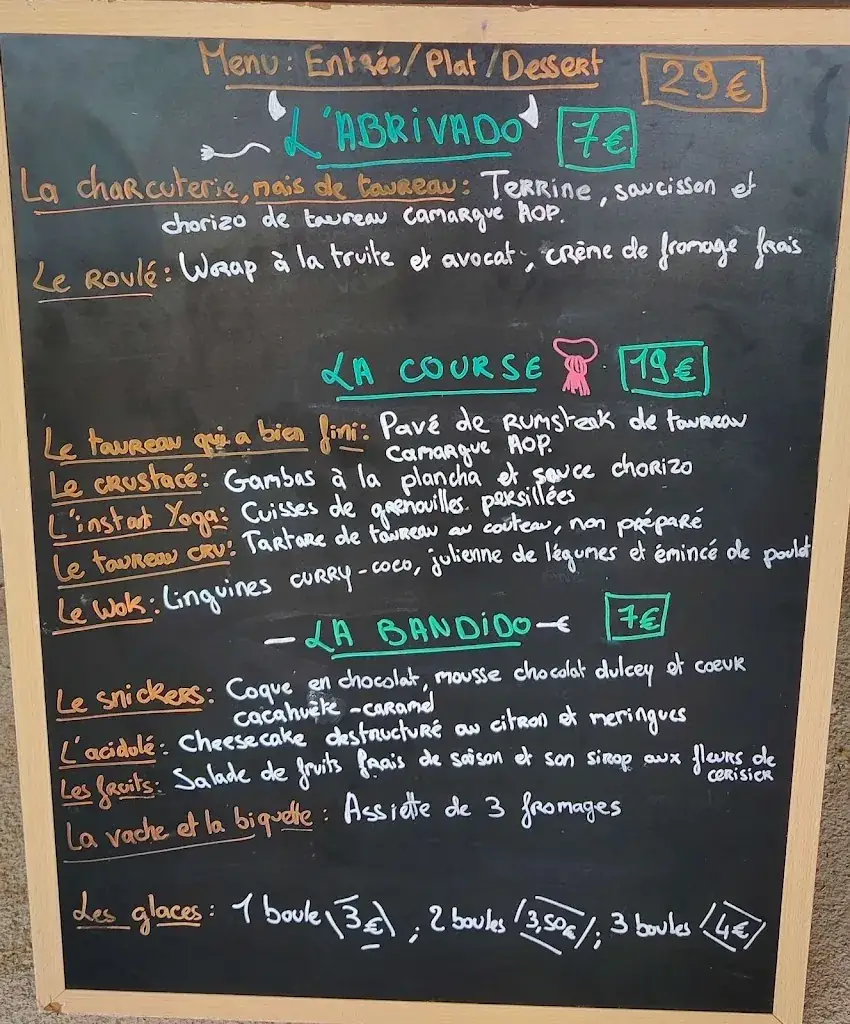 Menu: Entrée/Plat/Dessert 29€
L'ABRIVADO 7€
La charcuterie, mais de taureau: Terrine, saucisson et
chorizo de taureau Camargue AOP.
Le Roulé: Wrap à la truite et avocat, crème de fromage frais
LA COURSE 19€
Le taureau qui a bien fini: Pavé de Rumsteak de taureau
Camargue AOP.
Le crustacé: Gambas à la plancha et sauce chorizo
L'instant Yoga: Cuisses de grenouilles persillées
Le taureau cru: Tartare de taureau au couteau, non préparé
Le Wok: Linguines curry-coco, julienne de légumes et émincé de poulet
LA BANDIDO 7€
Le snickers: Coque en chocolat, mousse chocolat dulcey et coeur
cacahuète-caramel
L'acidulé: Cheesecake destructuré au citron et meringues
Les fruits: Salade de fruits frais de saison et son sirop aux fleurs de
cerisier
La vache et la biquette: Assiette de 3 fromages
Les glaces: 1 boule 3€; 2 boules 3,50€; 3 boules 4€